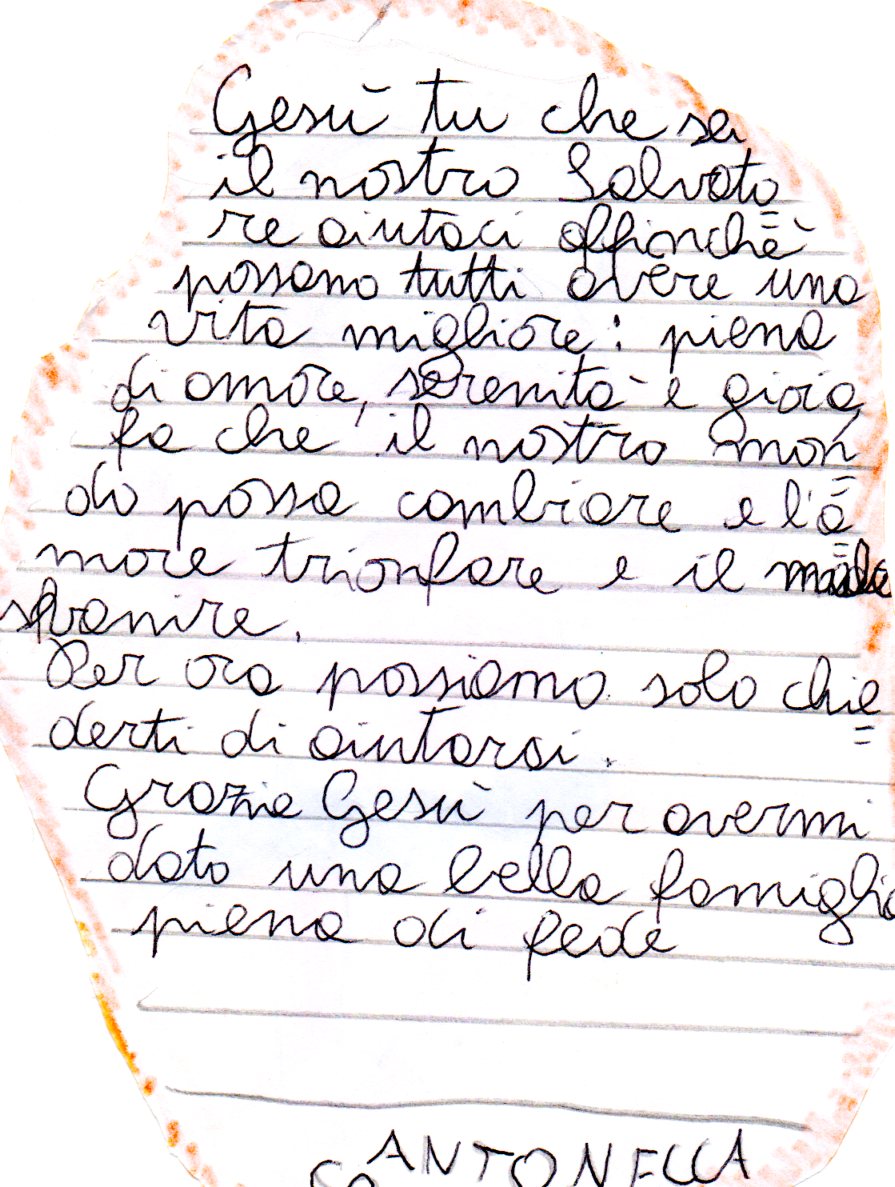 Gesù tu che sei
il nostro Salvato=
re aiutaci affinchè
possano tutti avere una
vita migliore: piena
di amore, serenità e gioia,
fa che il nostro mon=
do possa cambiare e l'a=
more trionfare e il male
svanire.
Per ora possiamo solo chie=
derti di aiutarci.
Grazie Gesù per avermi
dato una bella famiglia
piena di fede
ANTONELLA